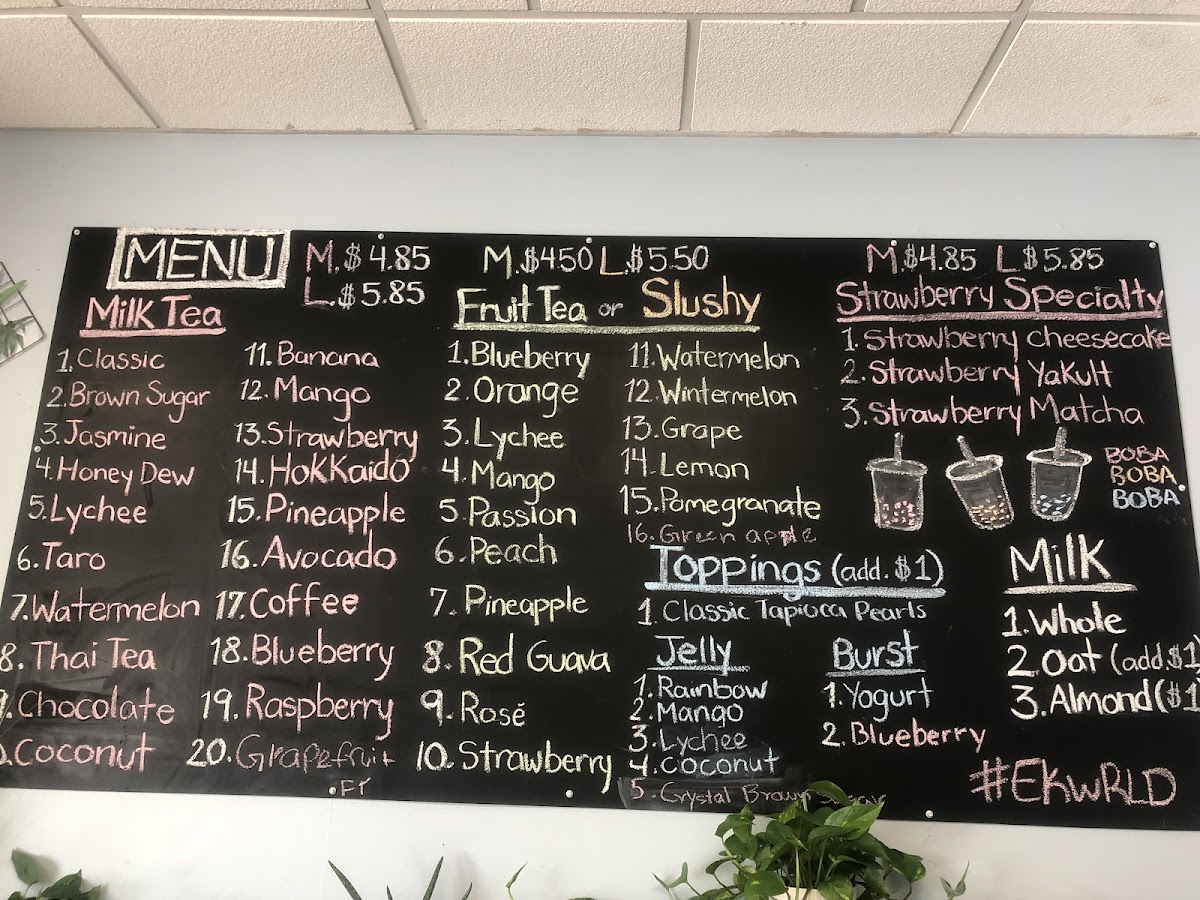 MENU
M.$4.85
L.$5.85
Milk Tea
1.Classic
2.Brown Sugar
3.Jasmine
4.Honey Dew
5.Lychee
6.Taro
7.Watermelon
8.Thai Tea
9.Chocolate
0.Coconut
11.Banana
12.Mango
13.Strawberry
14.Hokkaido
15.Pineapple
16.Avocado
17.Coffee
18.Blueberry
19.Raspberry
20.Grapefruit
Fr
M.$450 L.$5.50
Fruit Tea or Slushy
1.Blueberry
2.Orange
3.Lychee
4.Mango
5.Passion
6.Peach
7.Pineapple
8.Red Guava
9.Rosé
10.Strawberry
11.Watermelon
12.Wintermelon
13.Grape
14.Lemon
15.Pomegranate
16.Green apple
Toppings (add.$1)
1.Classic Tapioca Pearls
Jelly
1.Rainbow
2.Mango
3.Lychee
4.Coconut
5.Crystal Brown Sugar
Burst
1.Yogurt
2.Blueberry
M.$4.85 L.$5.85
Strawberry Specialty
1.Strawberry cheesecake
2.Strawberry Yakult
3.Strawberry Matcha
BOBA
BOBA
BOBA
Milk
1.Whole
2.Oat (add.$1)
3.Almond($1
#EKWRLD